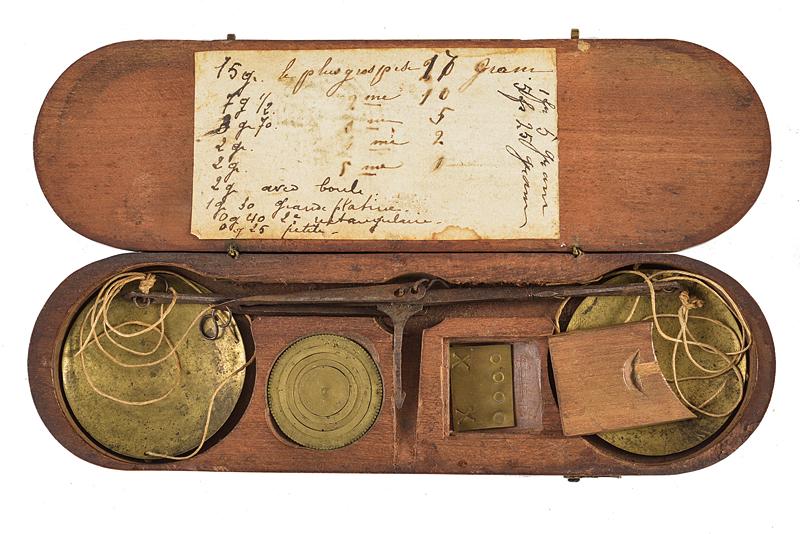 15 g. le plus gros 17 gram
7 g 1/2. 2 me 10
3 g 70. me 5
2 g. me 2
2 g. 5 me 1
2 g avec boule
1 g 30 grande platine
0 g 40 2e rectangulaire.
0 g 25 petite.
1 fr 5 gram
5 fr 25 gram
X X